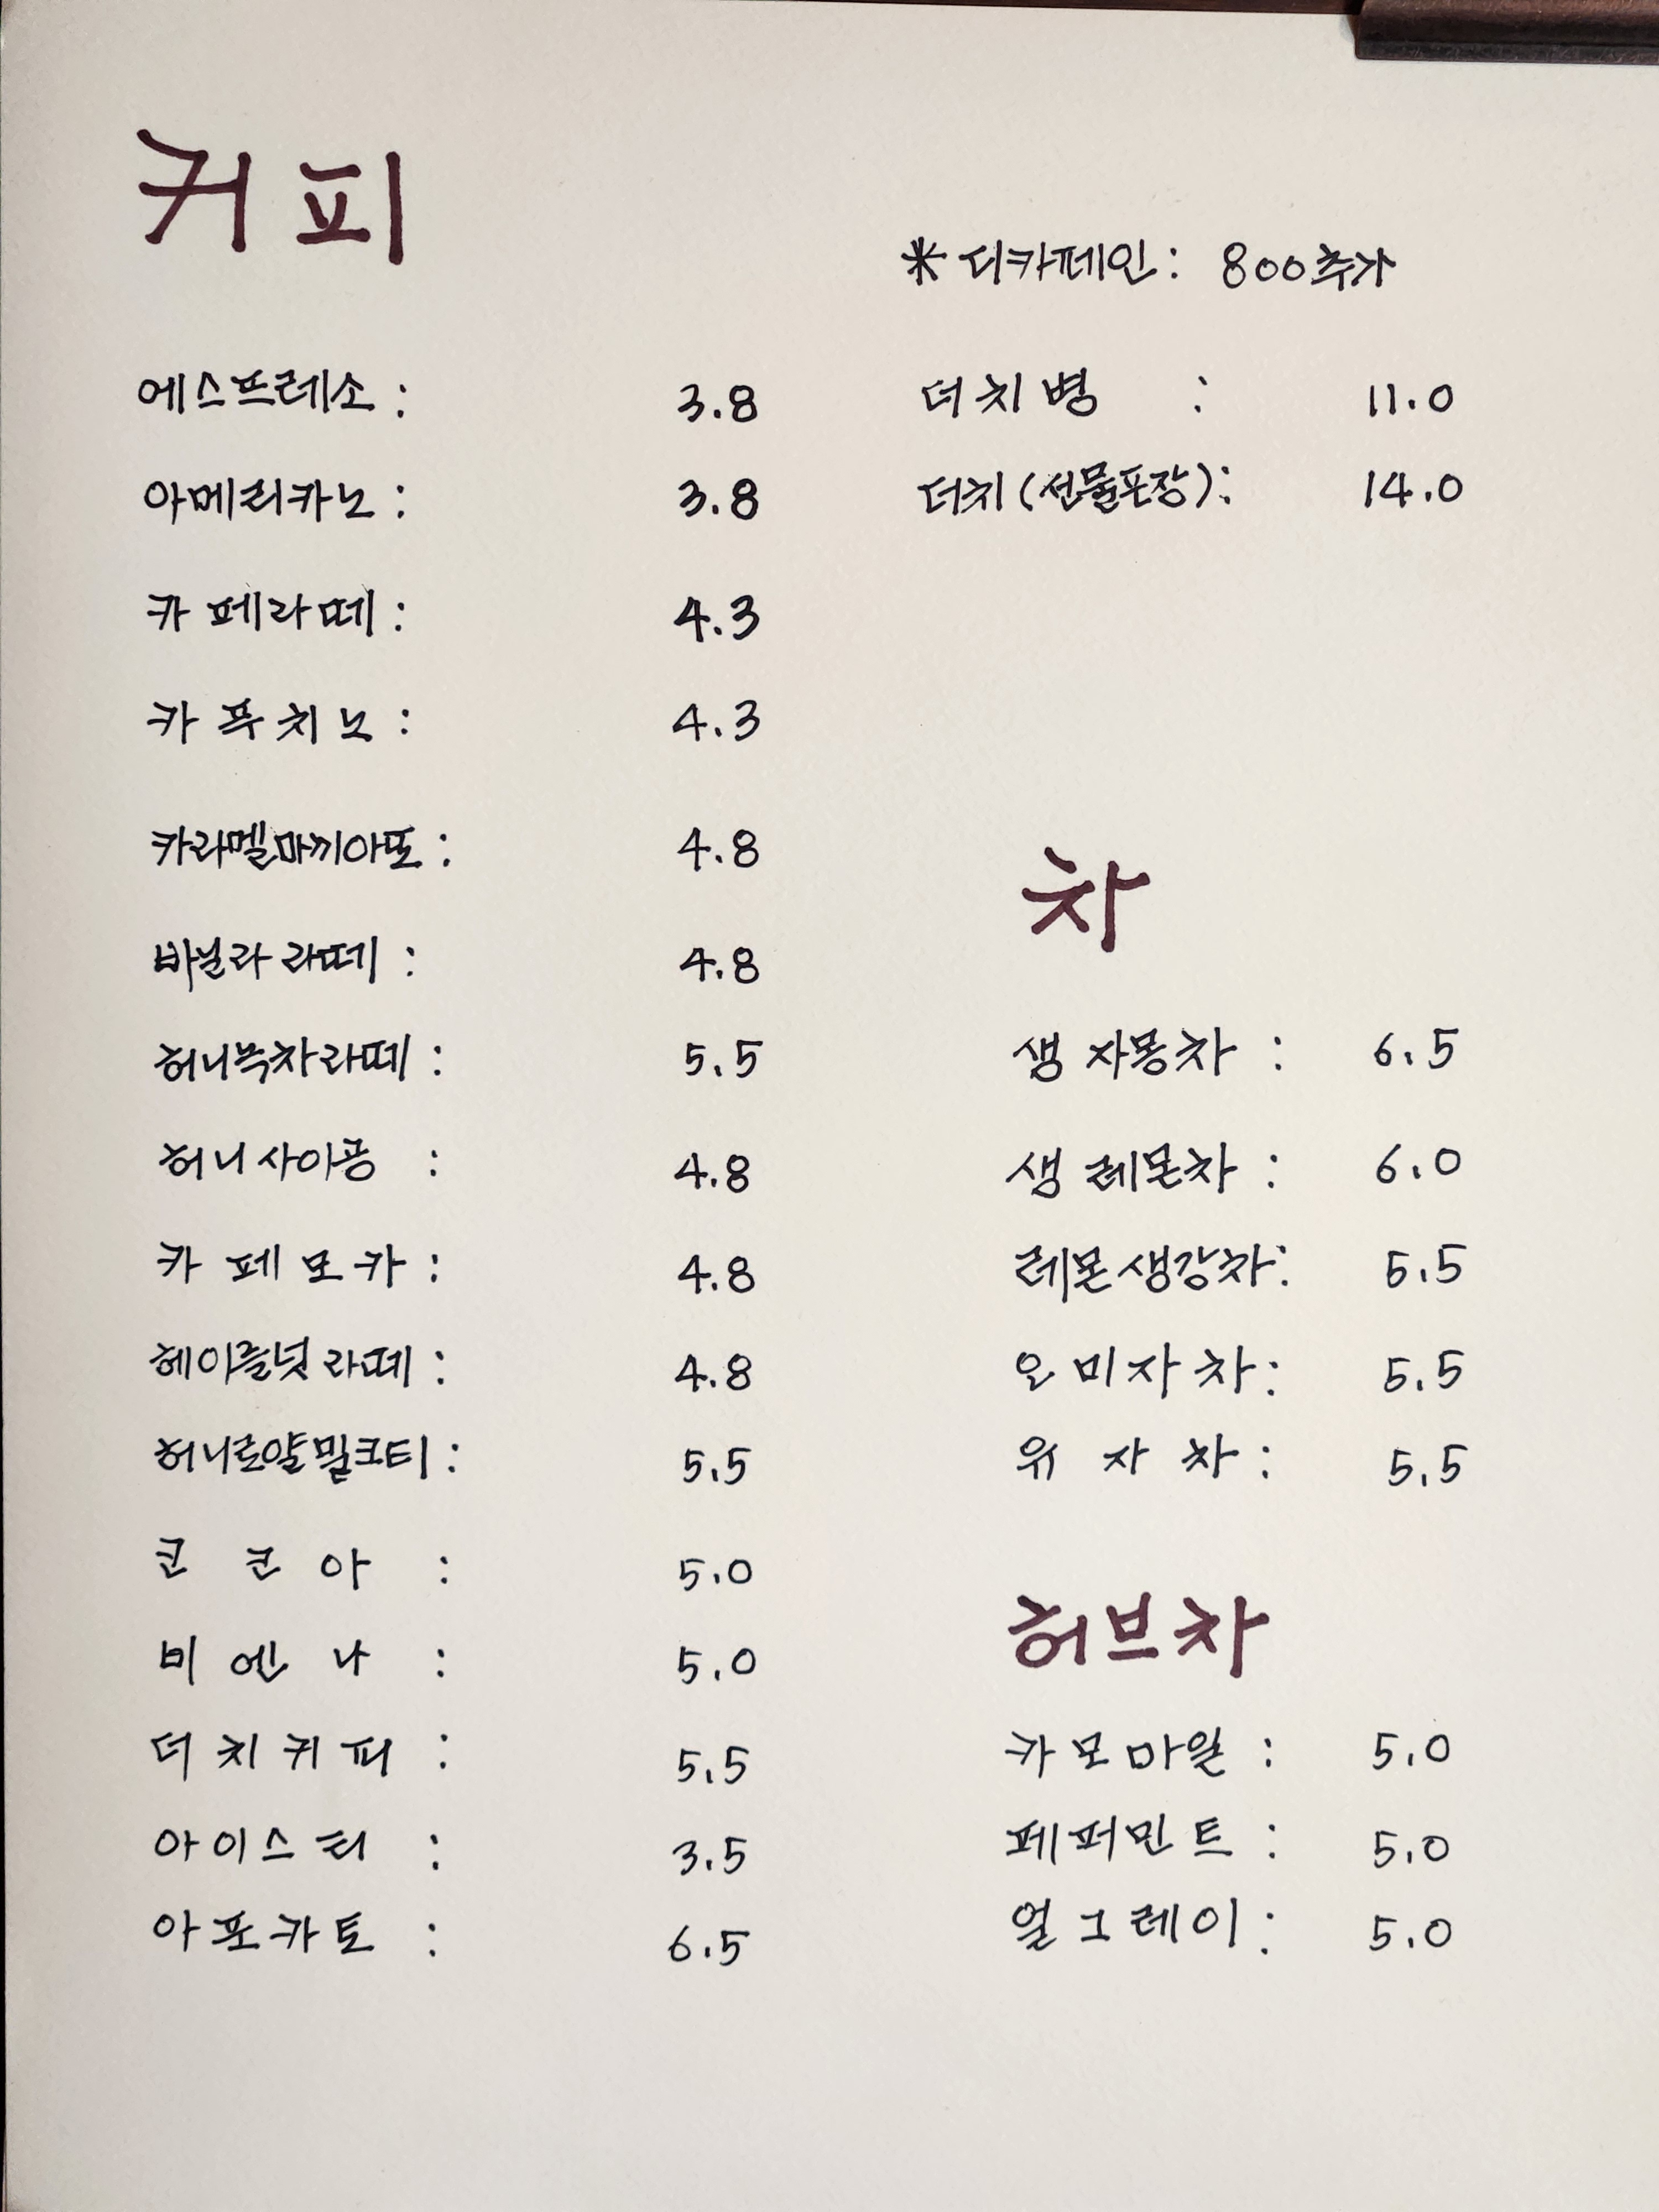 커피
에스프레소 : 3.8
아메리카노 : 3.8
카페라떼 : 4.3
카푸치노 : 4.3
카라멜마끼아또 : 4.8
바닐라 라떼 : 4.8
허니녹차라떼 : 5.5
허니사이공 : 4.8
카페모카 : 4.8
헤이즐넛 라떼 : 4.8
허니로얄밀크티 : 5.5
코코아 : 5.0
비엔나 : 5.0
더치커피 : 5.5
아이스티 : 3.5
아포카토 : 6.5
* 디카페인 : 800추가
더치병 : 11.0
더치(선물포장) : 14.0
차
생 자몽차 : 6.5
생 레몬차 : 6.0
레몬생강차 : 5.5
오미자차 : 5.5
유자차 : 5.5
허브차
카모마일 : 5.0
페퍼민트 : 5.0
얼그레이 : 5.0